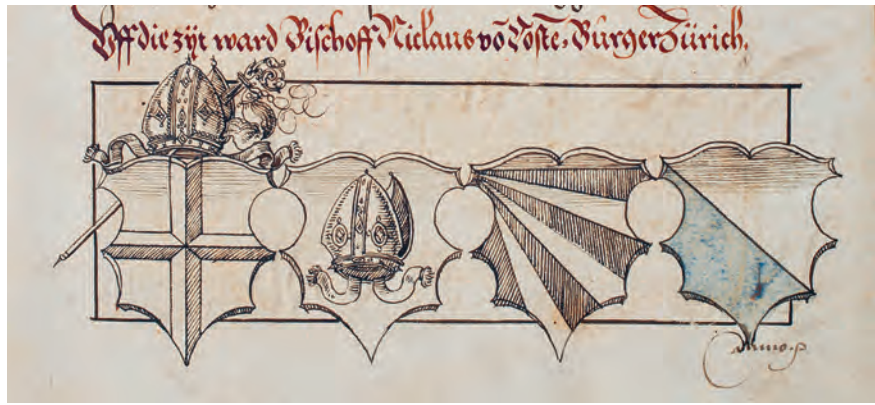 Uff die zÿt ward Bischoff Niclaus võ Coste, Burger Zürich.
Anno. p